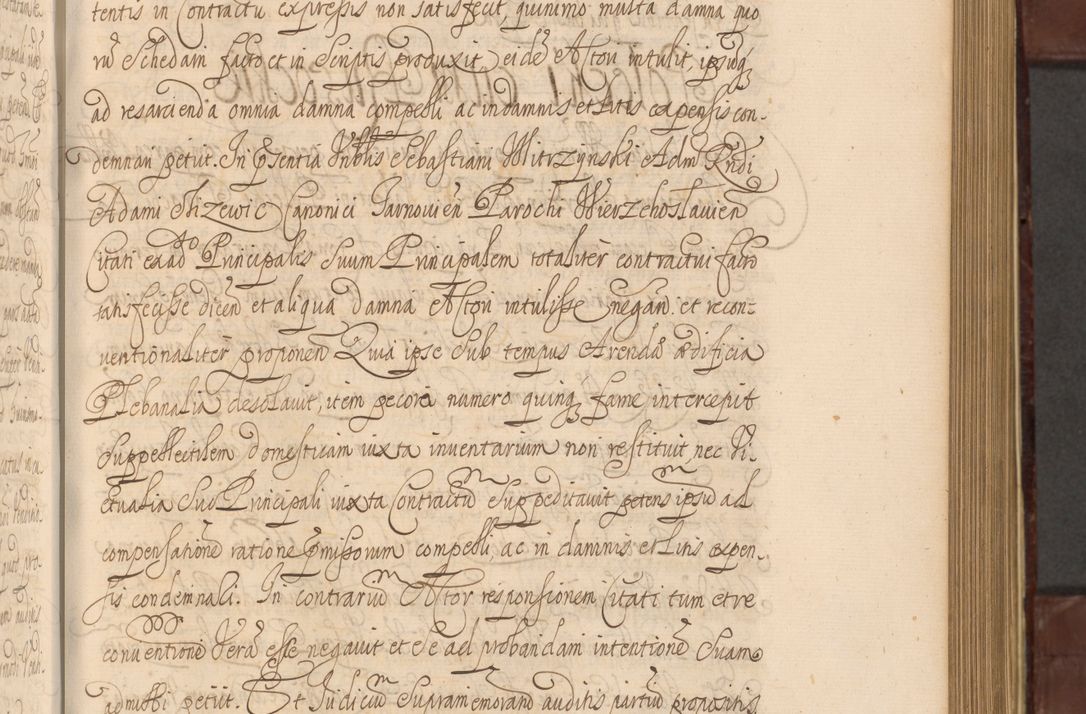 tentis in Contractu expressis non satisfecit, quinimo multa damna quo
rũ Schedam facto et in Scriptis produxit, eidẽ Actori intulit, ipsumq
ad resarcienda omnia damna compelli ac in damnis et litis expensis con-
demnari petiit. In Pñsentia Nobilis Sebastiani Mitrzynski Adm Rñdi
Adami Nizewic Canonici Tarnovieñ Parochi Wierzchoslavieñ
Citati ea ad Principalis Suum Principalem totaliter contractui facto
satisfecisse diceñ et aliqua damna Actori intulisse negañ et recon-
ventionaliter proponeñ Quia ipse Sub tempus Arendæ ædificia
Plebanalia desolavit, item pecora numero quinq fame intercepit
Suppellectilem domesticam iuxta inventarium non restituit nec Vi-
ctualia Suo Principali iuxta Contractũ Suppeditavit petens ipsũ ad
compensationẽ ratione Pñmissorum compelli, ac in damnis et litis expen-
sis condemnari. In contrariũ Actor responsionem Citati tum et re
conventionẽ Verã esse negavit et se ad probandam intentionẽ Suam
admitti petiit. Et Iudiciũ Supramemoratũ auditis partiũ propositis